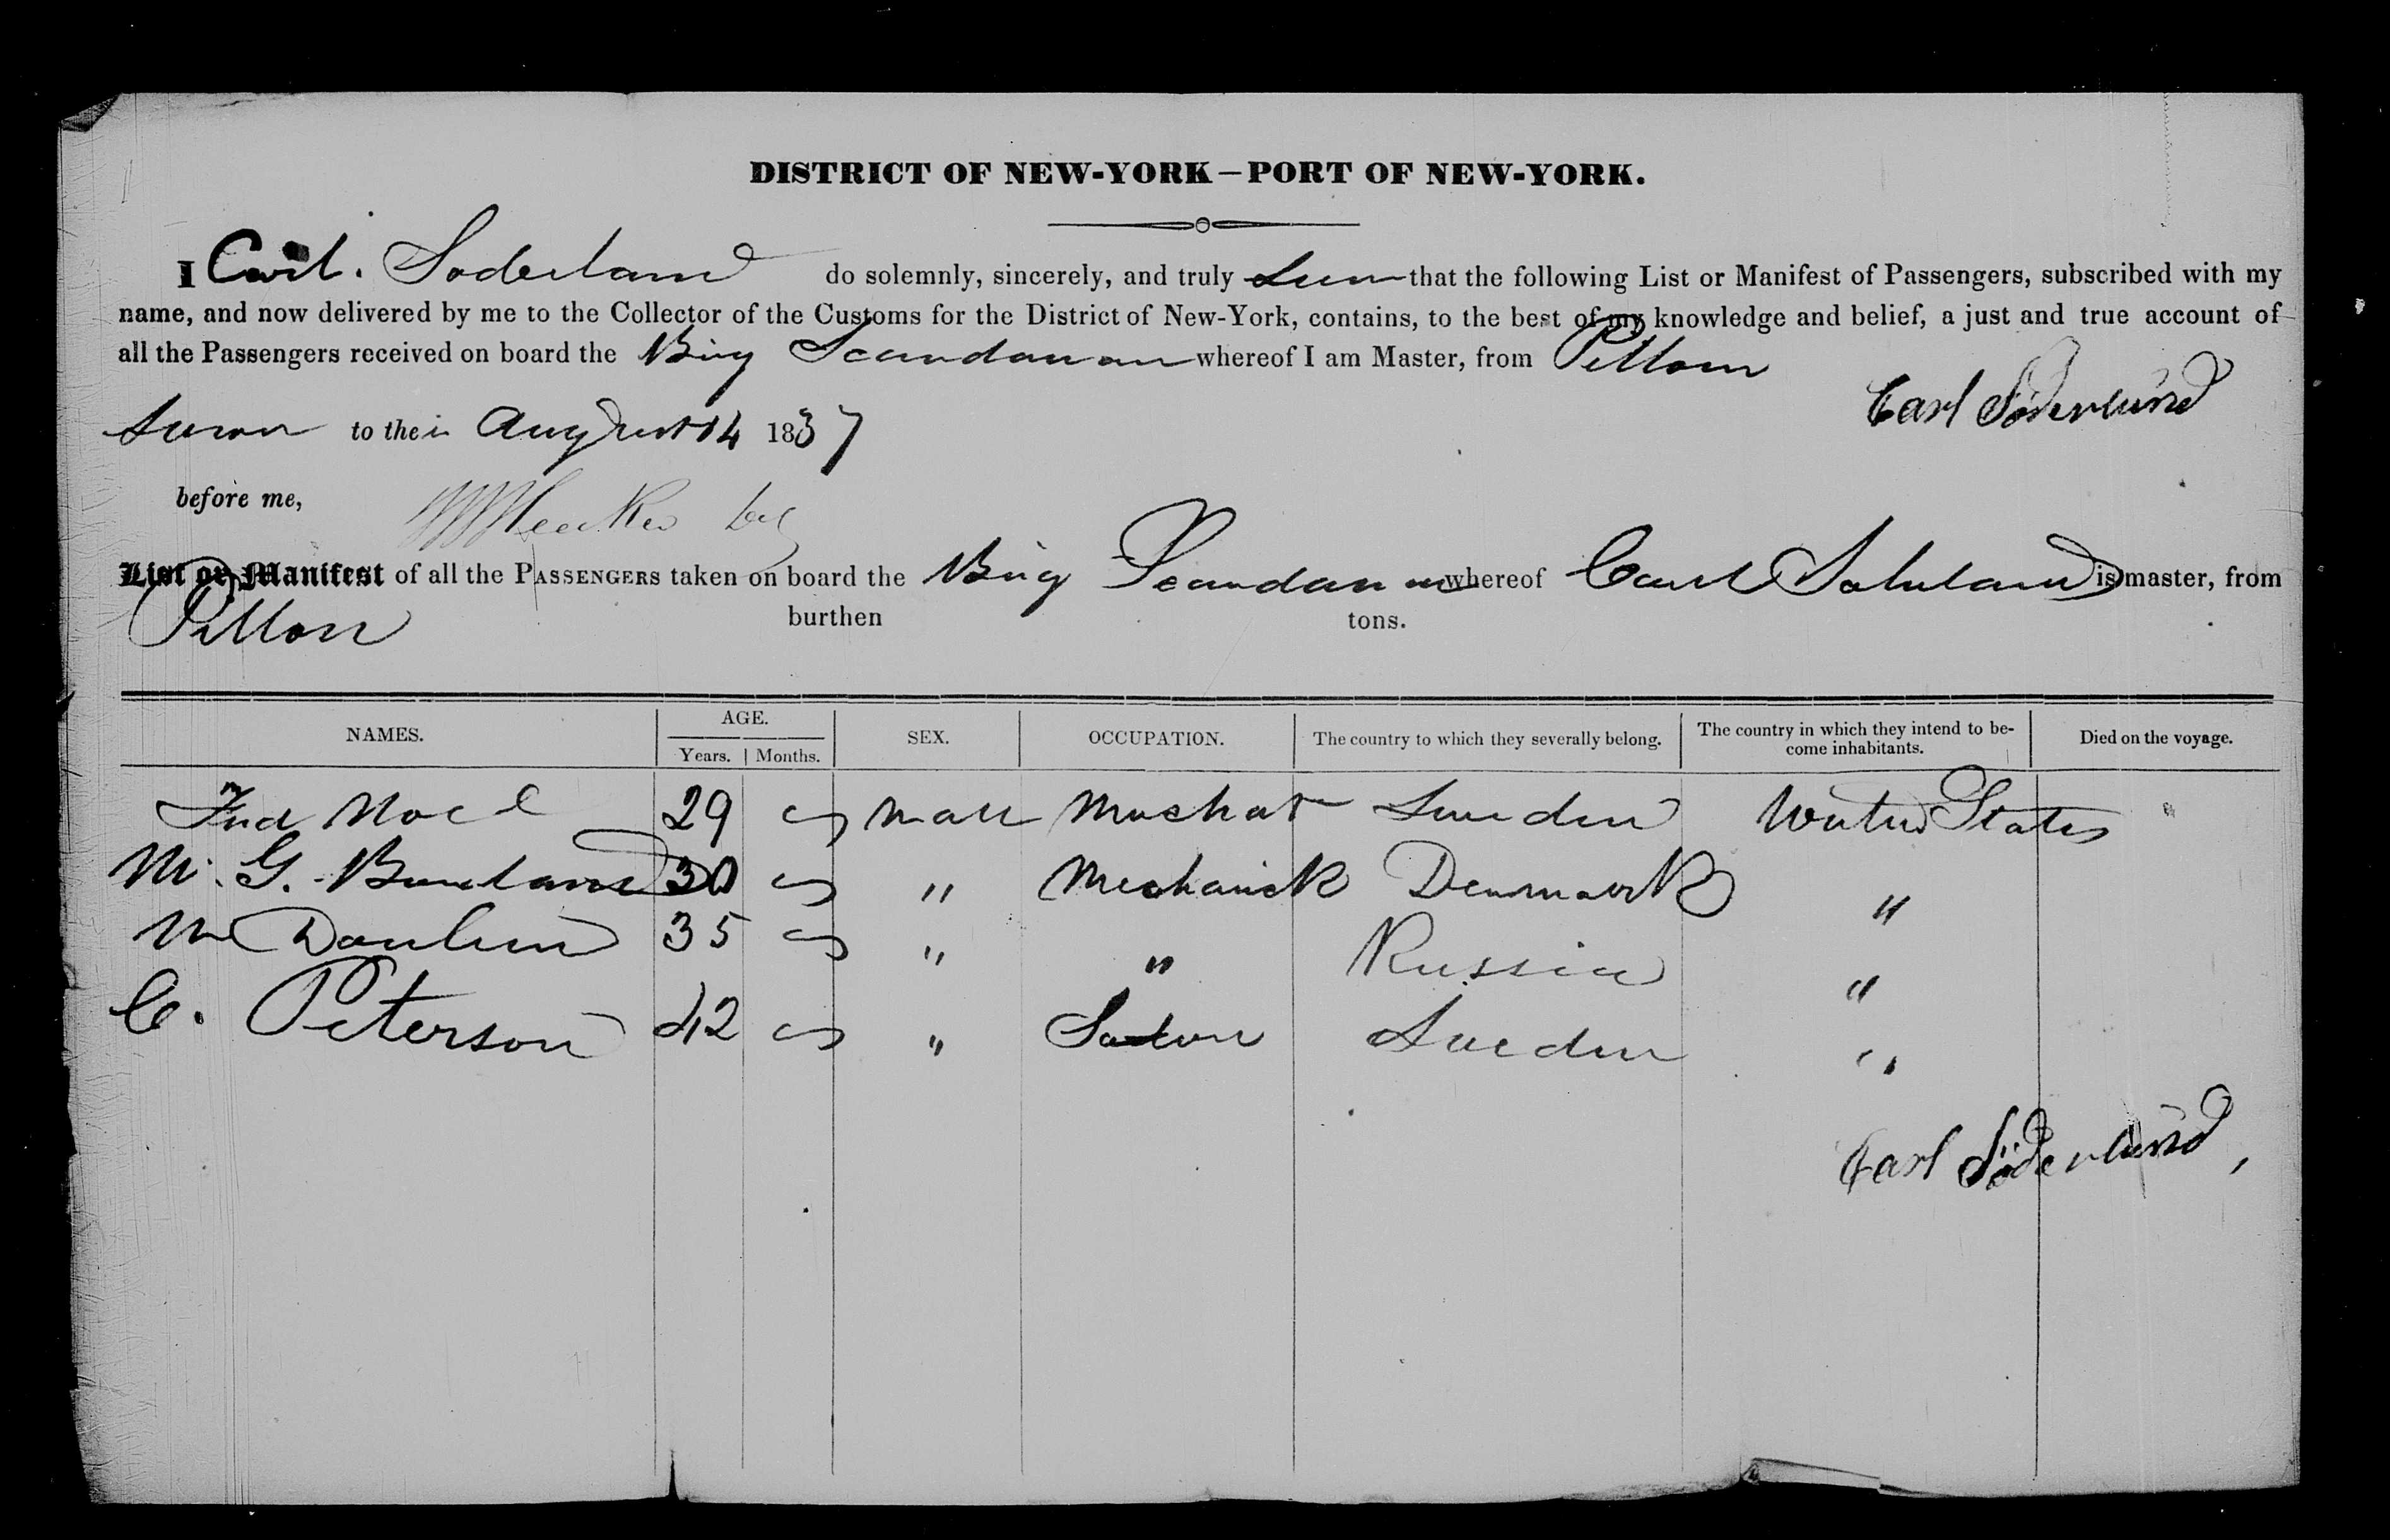 DISTRICT OF NEW-YORK—PORT OF NEW-YORK.
I Carl. Soderland do solemnly, sincerely, and truly that the following List or Manifest of Passengers, subscribed with my
name, and now delivered by me to the Collector of the Customs for the District of New-York, contains, to the best of my knowledge and belief, a just and true account of
all the Passengers received on board the Brig whereof I am Master, from
Carl Söderlund
Sworn to the August 14 1837
before me,
List or Manifest of all the PASSENGERS taken on board the Brig whereof Carl is master, from
burthen tons.
NAMES. AGE. SEX. OCCUPATION. The country to which they severally belong. The country in which they intend to be- Died on the voyage.
Years. Months. come inhabitants.
29 Male Sweden United States "
M. G. 30 " Mechanick Denmark "
35 " " Russia "
C. Peterson 42 " Sweden "
Carl Söderlund,